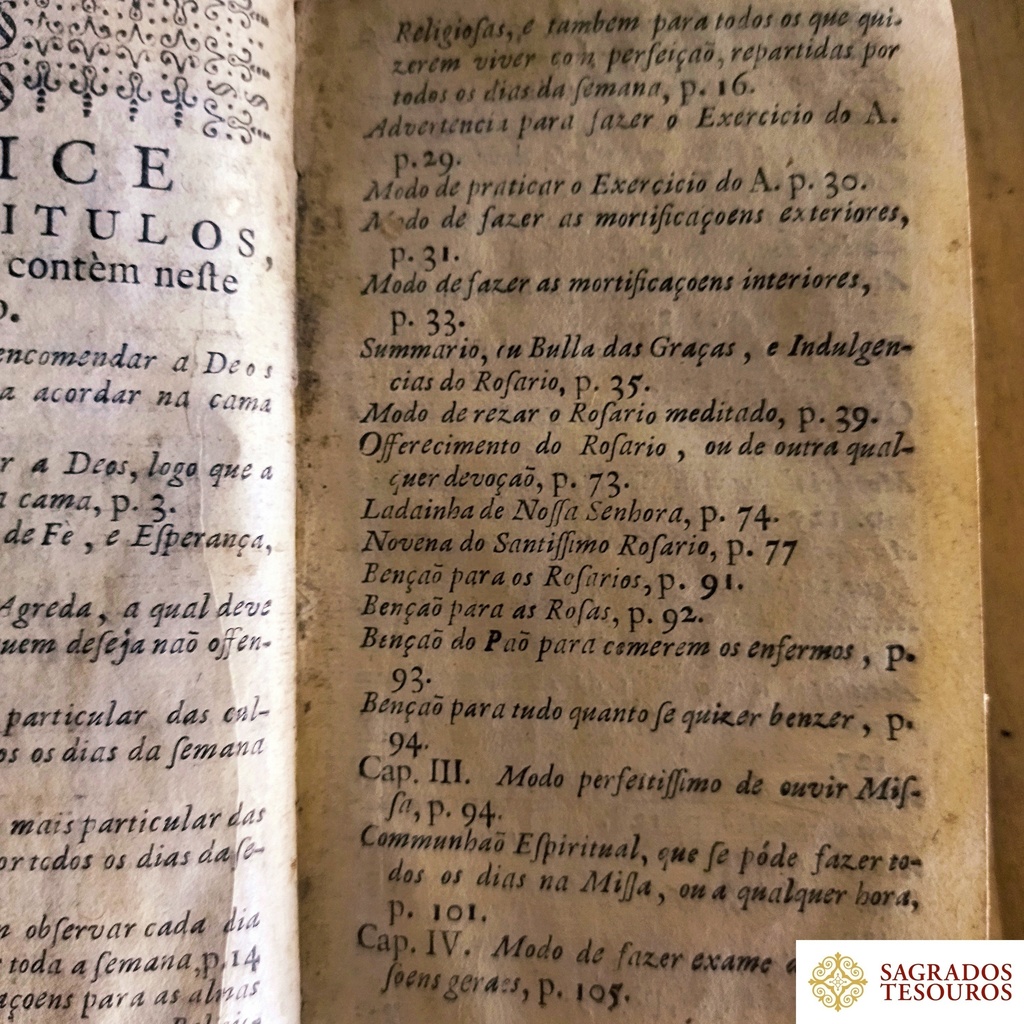 ICE
ITULOS,
contèm neſte
encomendar a Deos
a acordar na cama
r a Deos, logo que a
cama, p. 3.
de Fè, e Eſperança,
Agreda, a qual deve
uem deſeja naõ offen-
particular das cul-
os os dias da ſemana
mais particular das
or todos os dias da ſe-
obſervar cada dia
toda a ſemana, p. 14
açoens para as almas
Religioſas, e tambem para todos os que qui-
zerem viver com perfeiçaõ, repartidas por
todos os dias da ſemana, p. 16.
Advertencia para fazer o Exercicio do A.
p. 29.
Modo de praticar o Exercicio do A. p. 30.
Modo de fazer as mortificaçoens exteriores,
p. 31.
Modo de fazer as mortificaçoens interiores,
p. 33.
Summario, ou Bulla das Graças, e Indulgen-
cias do Roſario, p. 35.
Modo de rezar o Roſario meditado, p. 39.
Offerecimento do Roſario, ou de outra qual-
quer devoçaõ, p. 73.
Ladainha de Noſſa Senhora, p. 74.
Novena do Santiſſimo Roſario, p. 77
Bençaõ para os Roſarios, p. 91.
Bençaõ para as Roſas, p. 92.
Bençaõ do Paõ para comerem os enfermos, p.
93.
Bençaõ para tudo quanto ſe quizer benzer, p.
94.
Cap. III. Modo perfeitiſſimo de ouvir Miſ-
ſa, p. 94.
Communhaõ Eſpiritual, que ſe póde fazer to-
dos os dias na Miſſa, ou a qualquer hora,
p. 101.
Cap. IV. Modo de fazer exame
ſoens geraes, p. 105.
SAGRADOS
TESOUROS